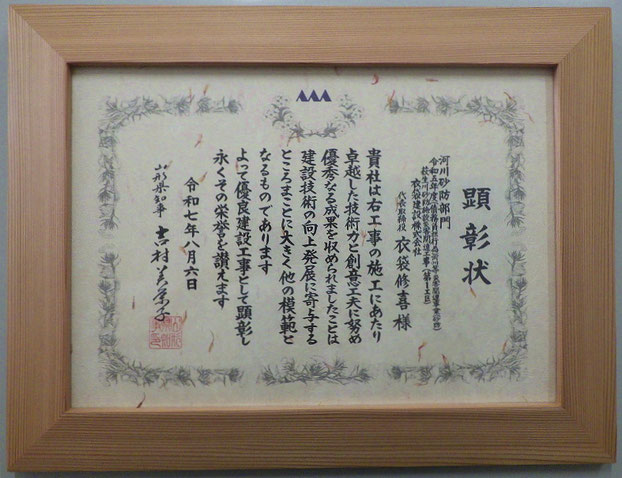 顕彰状
河川砂防部門
衣袋建設株式会社
代表取締役 衣袋修喜 様
貴社は右工事の施工にあたり
卓越した技術力と創意工夫に努め
優秀なる成果を収められましたことは
建設技術の向上発展に寄与する
ところまことに大きく他の模範と
なるものであります
よって優良建設工事として顕彰し
永くその栄誉を讃えます
令和七年八月六日
山形県知事 吉村美栄子